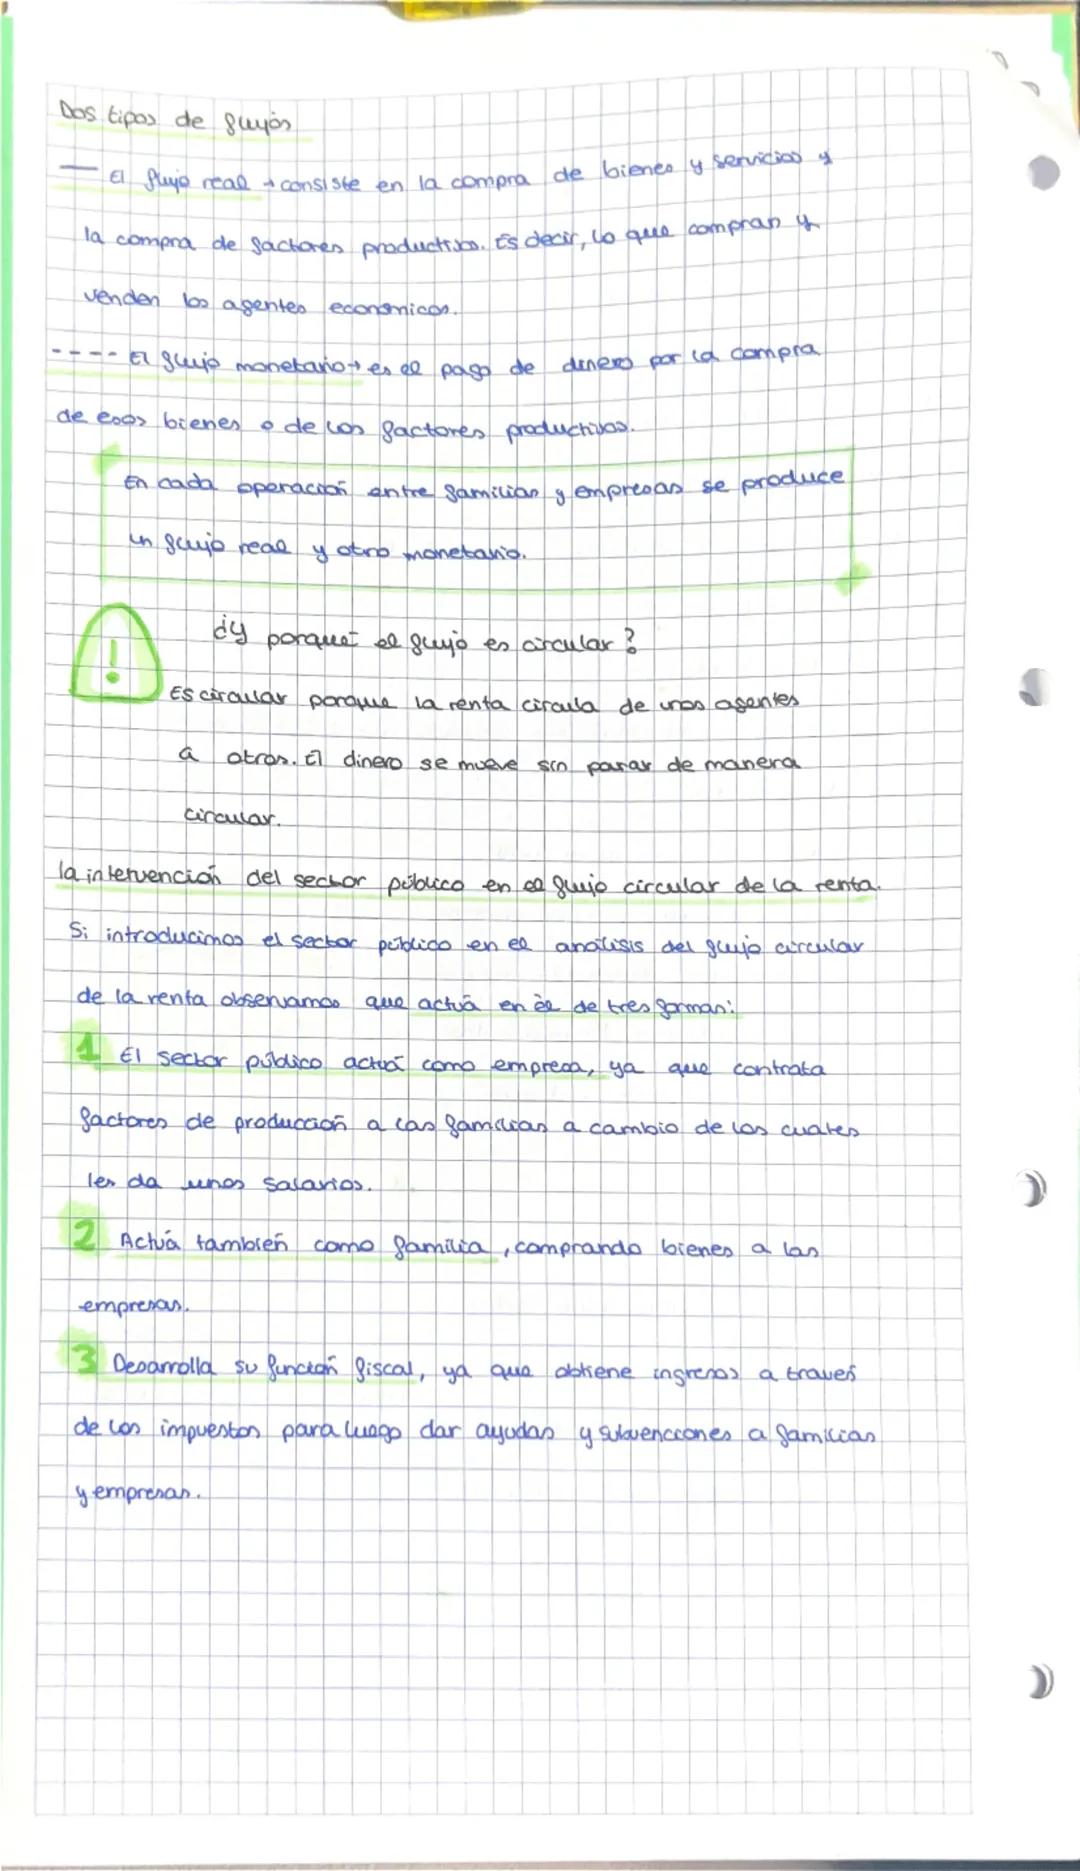 Dos tipos de flujos
— El flujo real → consiste en la compra de bienes y servicios y
la compra de factores productivos. Es decir, lo que compran y
venden los agentes economicos.
---- El flujo monetario → es el pago de dinero por la compra
de esos bienes o de los factores productivos.
En cada operación entre familias y empresas se produce
un flujo real y otro monetario.
!
¿y porqué el flujo es circular?
Es circular porque la renta circula de unos agentes
a otros. El dinero se mueve sin parar de manera
circular.
la intervención del sector público en el flujo circular de la renta.
Si introducimos el sector público en el análisis del flujo circular
de la renta observamos que actúa en él de tres formas:
1 El sector público actúa como empresa, ya que contrata
factores de producción a las familias a cambio de los cuales
les da unos salarios.
2 Actúa también como familia, comprando bienes a las
empresas.
3 Desarrolla su función fiscal, ya que obtiene ingresos a través
de los impuestos para luego dar ayudas y subvenciones a familias
y empresas.